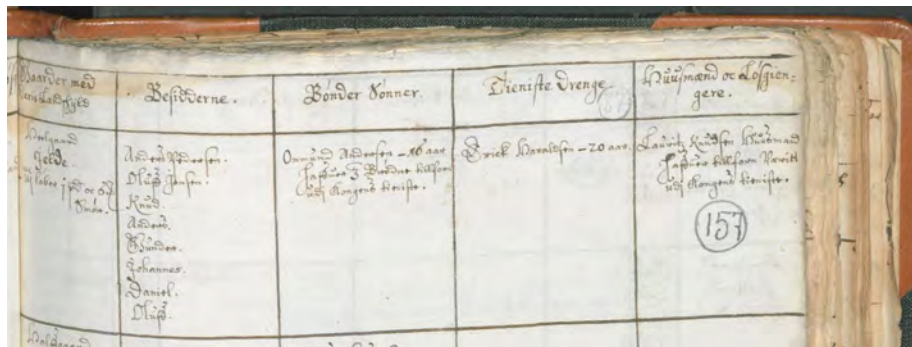 Gaarder med
deris Ladschyld
Besidderne.
Bönder Sönner.
Tieniste drenge
Huusmænd oc Losgien-
gere.
Helgaand
Gelde.
Smör.
Anders Pedersen.
Oluff Jensen.
Knud.
Anders.
Gunder.
Johannes.
Daniel.
Oluff.
Onnund Andersen - 16 aar
haffuer 3 Brödre
udj Kongens tieniste.
Erick Haraldsen - 20 aar.
Lauritz Knudsen Huusmand
haffuer tilforn værit
udj Kongens tieniste.
157